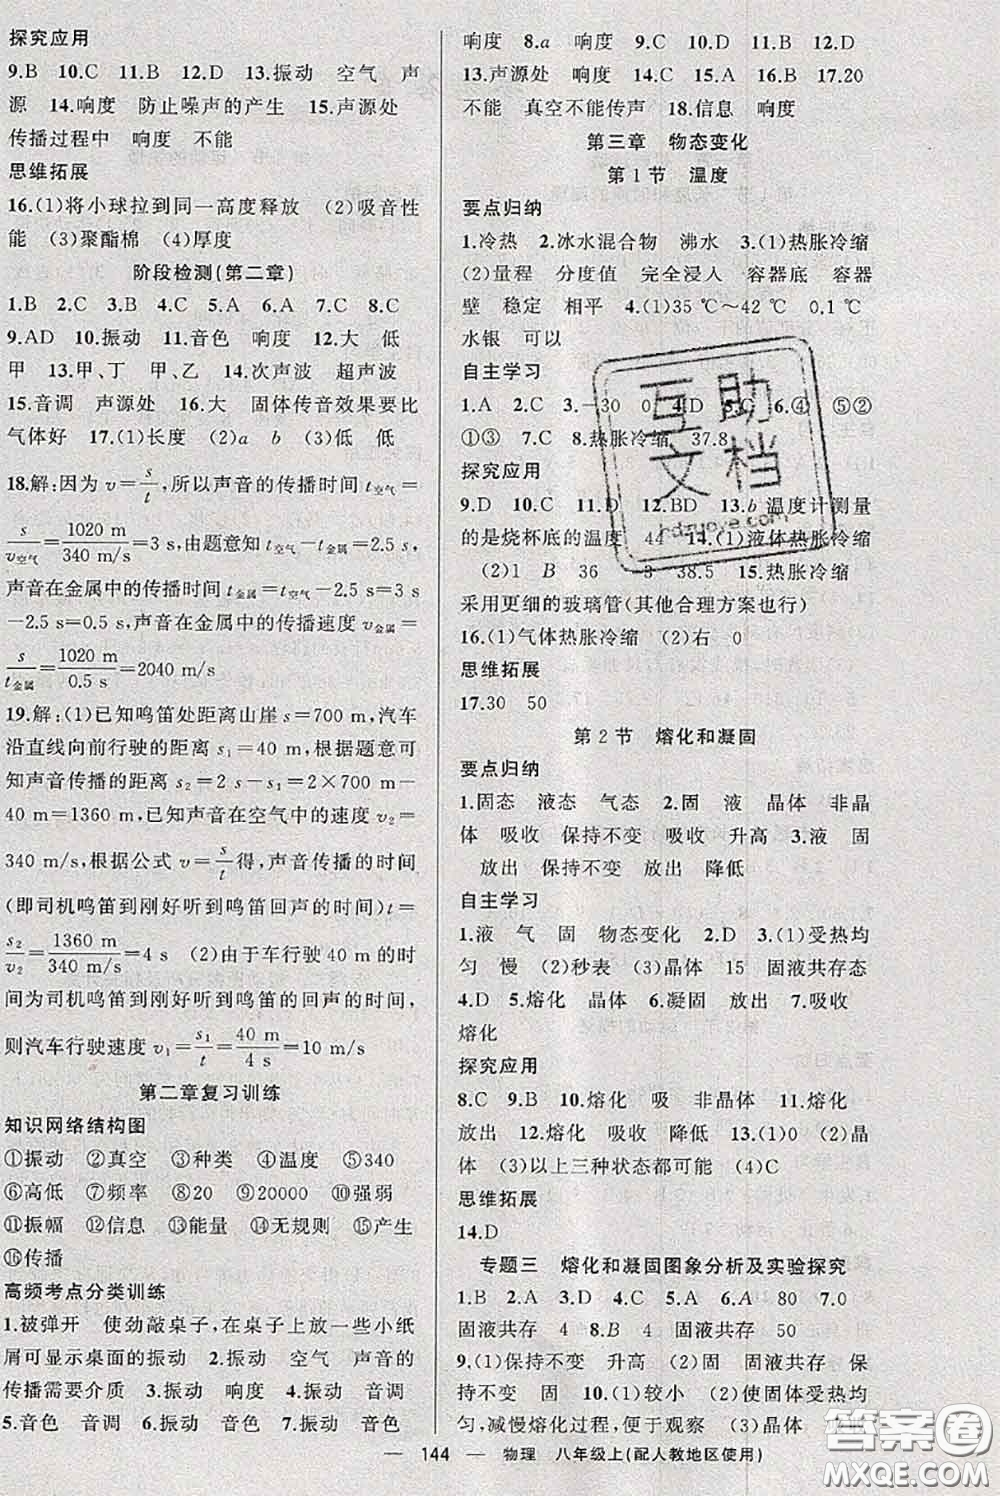 探究应用
9.B 10.C 11.B 12.D 13.振动 空气 声
源 14.响度 防止噪声的产生 15.声源处
传播过程中 响度 不能
思维拓展
16.(1)将小球拉到同一高度释放 (2)吸音性
能 (3)聚酯棉 (4)厚度
阶段检测(第二章)
1.B 2.C 3.B 4.C 5.A 6.A 7.C 8.C
9.AD 10.振动 11.音色 响度 12.大 低
甲 13.甲、丁 甲、乙 14.次声波 超声波
15.音调 声源处 16.大 固体传音效果要比
气体好 17.(1)长度 (2)a b (3)低 低
18.解:因为 v=s/t,所以声音的传播时间 t空气=
s/v空气=1020 m/340 m/s=3 s,由题意知 t空气-t金属=2.5 s,
声音在金属中的传播时间 t金属=t空气-2.5 s=3 s
-2.5 s=0.5 s,声音在金属中的传播速度 v金属=
s/t金属=1020 m/0.5 s=2040 m/s
19.解:(1)已知鸣笛处距离山崖 s=700 m,汽车
沿直线向前行驶的距离 s1=40 m,根据题意可
知声音传播的距离 s2=2 s-s1=2×700 m
-40 m=1360 m,已知声音在空气中的速度 v2=
340 m/s,根据公式 v=s/t得,声音传播的时间
(即司机鸣笛到刚好听到鸣笛回声的时间)t=
s2/v2=1360 m/340 m/s=4 s (2)由于车行驶 40 m 的时
间为司机鸣笛到刚好听到鸣笛的回声的时间,
则汽车行驶速度 v1=s1/t=40 m/4 s=10 m/s
第二章复习训练
知识网络结构图
①振动 ②真空 ③种类 ④温度 ⑤340
⑥高低 ⑦频率 ⑧20 ⑨20000 ⑩强弱
⑪振幅 ⑫信息 ⑬能量 ⑭无规则 ⑮产生
⑯传播
高频考点分类训练
1.被弹开 使劲敲桌子,在桌子上放一些小纸
屑可显示桌面的振动 2.振动 空气 声音的
传播需要介质 3.振动 响度 4.振动 音调
5.音色 音调 6.振动 音色 7.振动 音色
响度 8.a 响度 9.C 10.D 11.B 12.D
13.声源处 响度 14.C 15.A 16.B 17.20
不能 真空不能传声 18.信息 响度
第三章 物态变化
第 1 节 温度
要点归纳
1.冷热 2.冰水混合物 沸水 3.(1)热胀冷缩
(2)量程 分度值 完全浸入 容器底 容器
壁 稳定 相平 4.(1)35 ℃～42 ℃ 0.1 ℃
水银 可以
自主学习
1.A 2.C 3.-30 0 4.D 5.C 6.④ ⑤②
①③ 7.C 8.热胀冷缩 37.8
探究应用
9.D 10.C 11.D 12.BD 13.b 温度计测量
的是烧杯底的温度 44 14.(1)液体热胀冷缩
(2)1 B 36 3 38.5 15.热胀冷缩
采用更细的玻璃管(其他合理方案也行)
16.(1)气体热胀冷缩 (2)右 0
思维拓展
17.30 50
第 2 节 熔化和凝固
要点归纳
1.固态 液态 气态 2.固 液 晶体 非晶
体 吸收 保持不变 吸收 升高 3.液 固
放出 保持不变 放出 降低
自主学习
1.液 气 固 物态变化 2.D 3.(1)受热均
匀 慢 (2)秒表 (3)晶体 15 固液共存态
4.D 5.熔化 晶体 6.凝固 放出 7.吸收
熔化
探究应用
8.C 9.B 10.熔化 吸 非晶体 11.熔化
放出 12.熔化 吸收 降低 13.(1)0 (2)晶
体 (3)以上三种状态都可能 (4)C
思维拓展
14.D
专题三 熔化和凝固图象分析及实验探究
1.B 2.A 3.D 4.C 5.A 6.A 80 7.0
固液共存 4 8.B 4 固液共存 50
9.(1)保持不变 升高 (2)固 固液共存 保
持不变 固 10.(1)较小 (2)使固体受热均
匀,减慢熔化过程,便于观察 (3)晶体 不变
— 144 — 物理 八年级上(配人教地区使用)
互助
文档
hdzuoye.com
答案圈
MXQE.COM